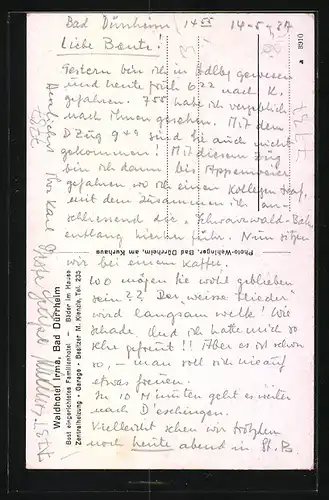 Bad Dürrheim, 14 55 14-5-37
Liebe Beate!
Gestern bin ich in Hdlbg gewesen
und heute früh 6 22 nach K.
gefahren. 7 55 habe ich vergeblich
nach Ihnen gesehen. Mit dem
D Zug 9 49 sind Sie auch nicht
gekommen! Mit diesem Zug
bin ich dann bis Appenweier
gefahren wo ich einen Kollegen traf,
mit dem zusammen ich an-
schliessend die "Schwarzwald-Bahn
entlang hierher fuhr. Nun sitzen
wir bei einem Kaffee.
Wo mögen Sie wohl geblieben
sein?? Der weisse Flieder
wird langsam welk! Wie
schade. Und ich hatte mich so
sehr gefreut!! Aber es ist schon
so, – man soll sich nie auf
etwas freuen.
In 10 Minuten geht es weiter
nach Deschingen.
Vielleicht sehen wir trotzdem
noch heute abend in St.
Herzlichst Ihr Karl
Waldhotel Irma, Bad Dürrheim
Best eingerichtetes Familienhotel - Bäder im Hause
Zentralheizung - Garage - Besitzer M. Kienzle, Tel. 233
Photo-Wehinger, Bad Dürrheim, am Kurhaus
a 8910